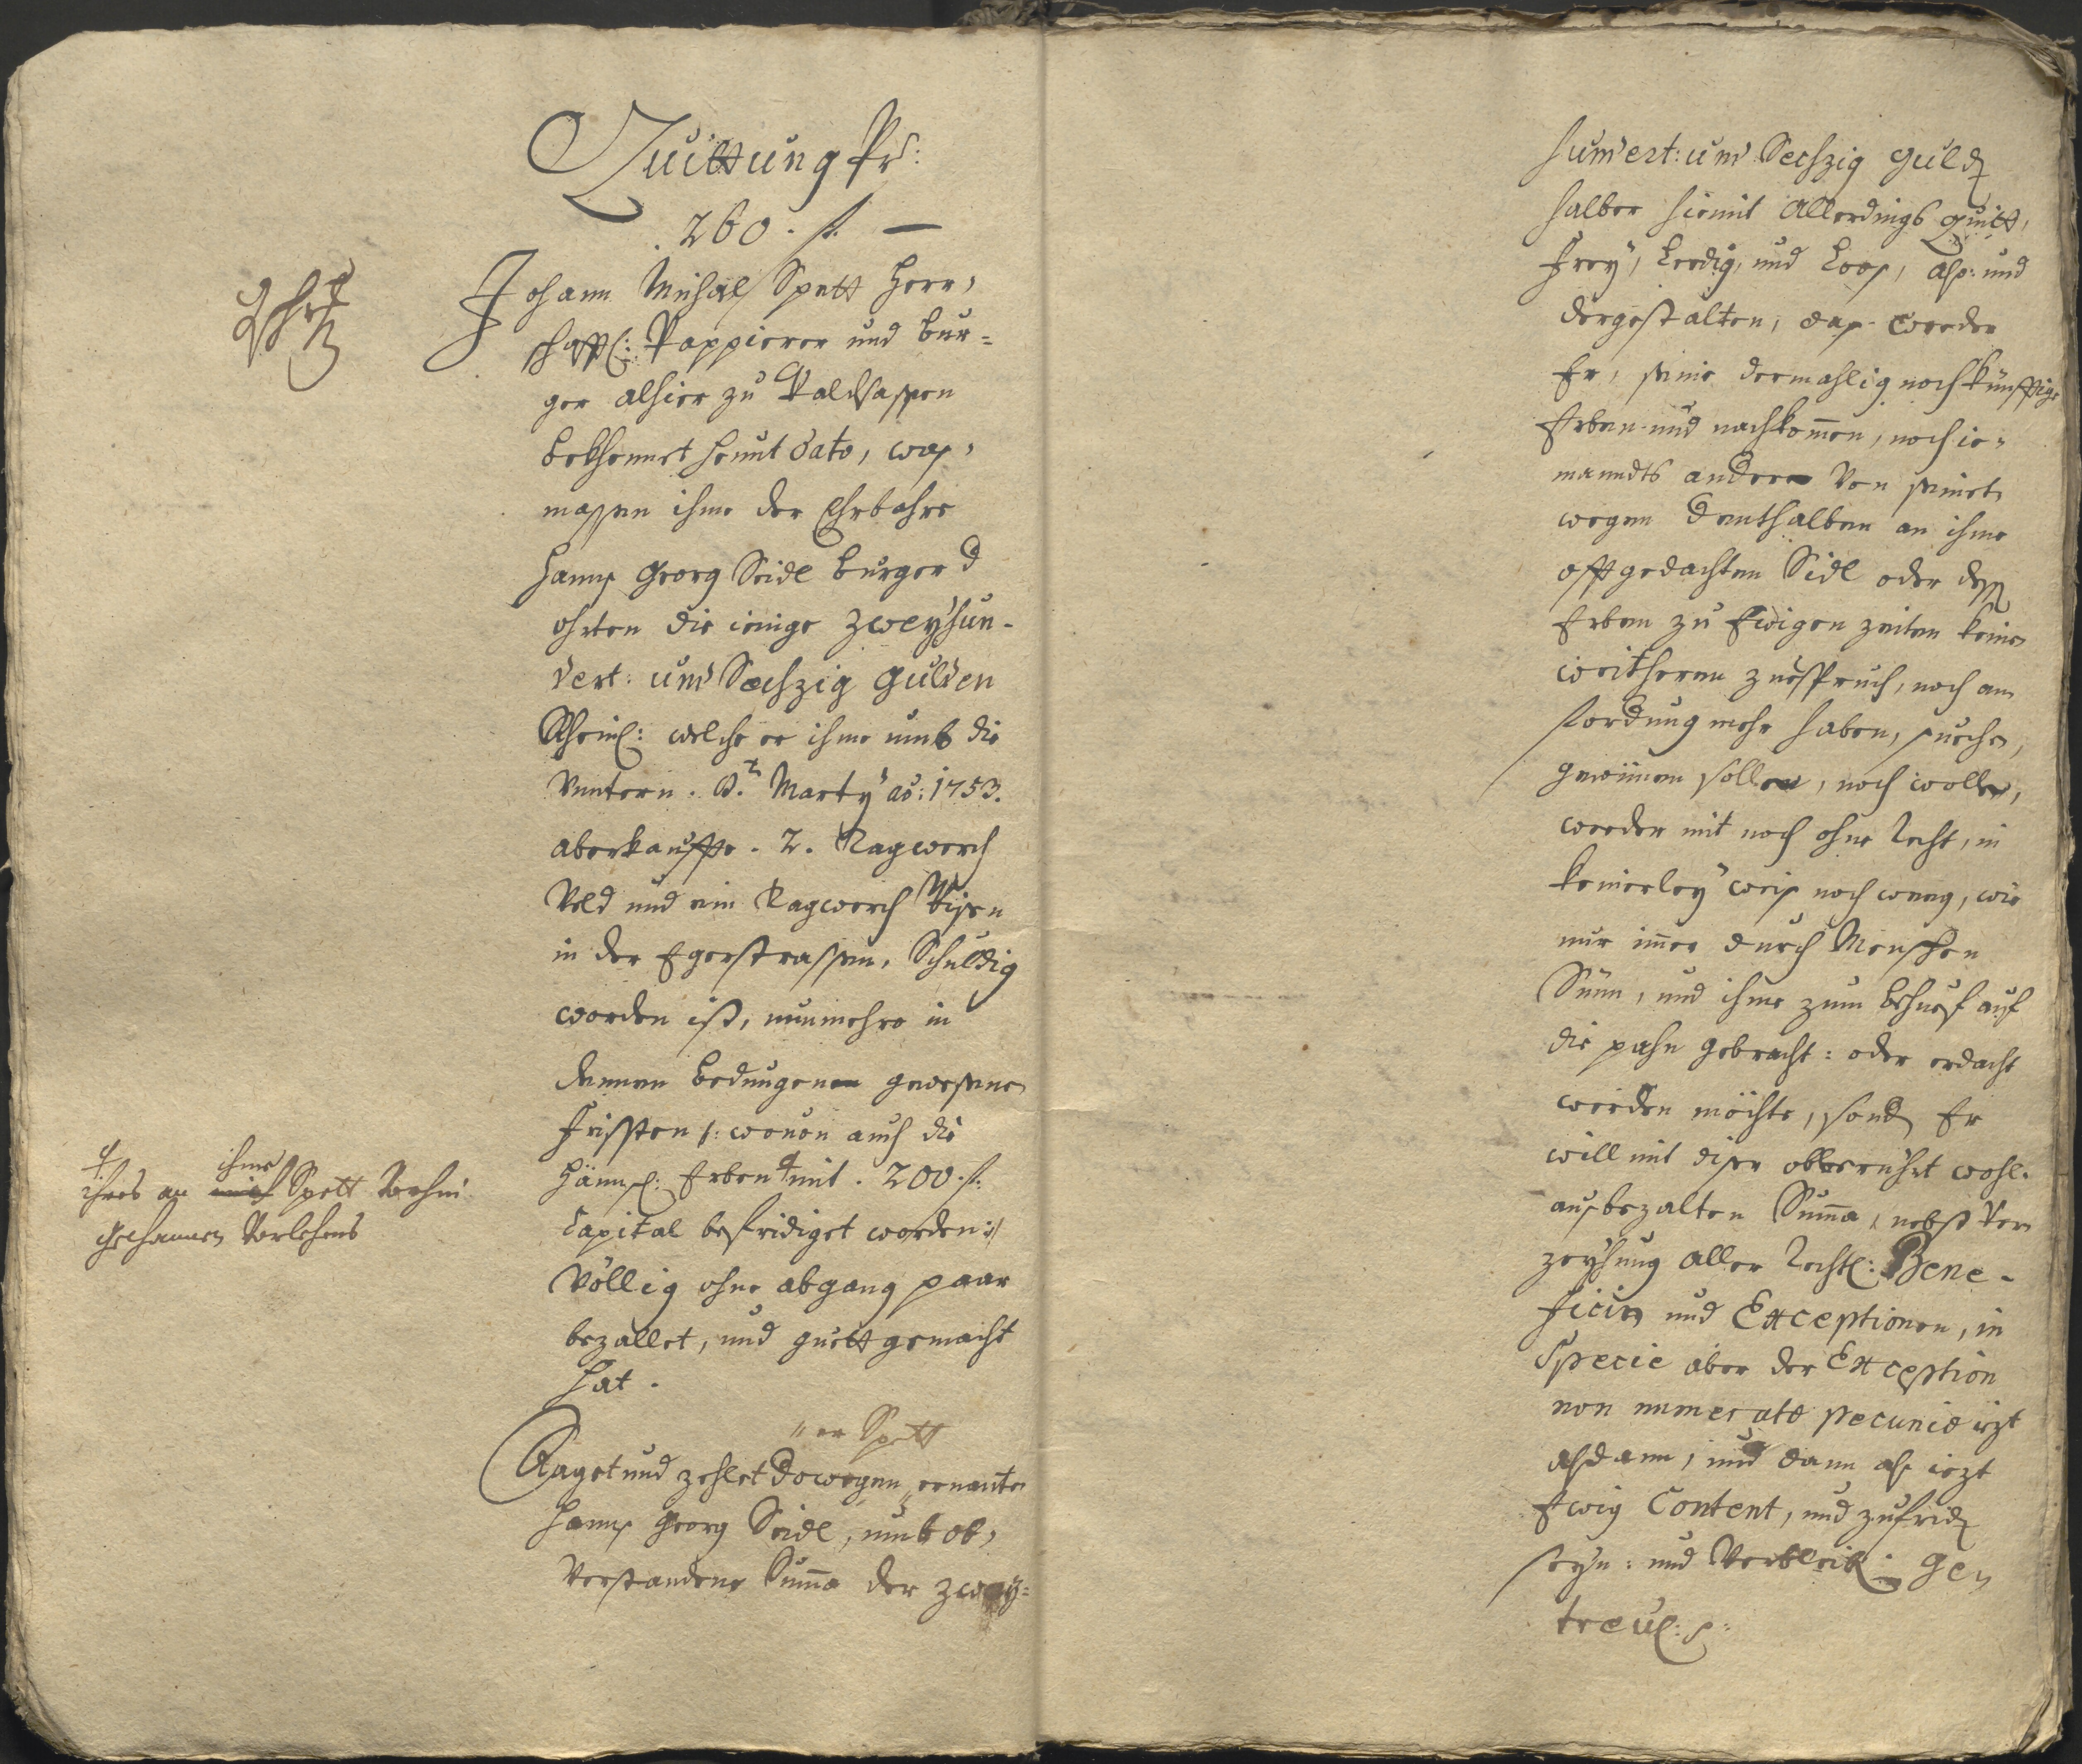 Quittung Pr:
260. fl. —
Johann Michäl Spett Herr,
schafftl: Pappierer und bur=
ger alhier zu Waldsassen
bekhennet heunt dato, was,
massen ihme der Ehrbahre
Hannß Georg Seidl burger d
ohrten die ienige zweyhun-
dert: und Sechzig gulden
Rheinl: welche er ihme umb die
Untern . Marty ao: 1753.
aberkauffte . 2. Tagwerch
Veld und ein Tagwerch Wisen
in der Egerstrassen, Schuldig
worden ist, nunmehro in
denen bedungenen gewesenen
Fristen /: wouon auch die
Erben † mit . 200. fl:
Capital befridiget worden :/
Völlig ohne abgang paar
bezallet, und guett gemacht
hat .
† ihres an ihme Spett
Vorlehens
„ er Spett
Saget und zehlet dowegen „ ernanten
Hannß Georg Seidl, umb ob,
Verstandene Summa der zwey=
hundert: und Sechzig guld
halber hiemit Allerdings Quitt,
Frey, Leedig, und Looß, alß: und
dergestalten, daß weeder
Er, seine dermahlig noch künfftige
Erben und nachkommen, noch ie=
manndts anderer Von seinet
wegen denthalben an ihme
offtgedachten Sidl oder dessen
Erben zu Ewigen zeiten keinen
weitheren zuespruch, noch an
fordung mehr haben, suechen,
gewünen sollen, noch wollen,
weeder mit noch ohne Recht, in
keinerley weis noch weeg, wie
nur immer durch Menschen
Sünn, und ihme zum behuef auf
die pahn gebracht: oder erdacht
werden möchte, sond Er
will mit diser obberührt wohl.
ausbezalten Summa, nebst Ver
zeyhung aller Rechtl: Bene-
ficien und Exceptionen, in
Specie aber der Exception
non numeratæ pecuniæ iezt
alsdann, und dann alß iezt
Ewig Content, und zufrid
seyn: und Verbleib: Ge,
treul: p: